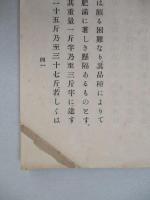 は頗る困難なり其品種によりて
肥瘠に著しき懸隔あるものとす。
其重量一斤半乃至三斤半に達す
二十五斤乃至三十七斤若しくは
四一